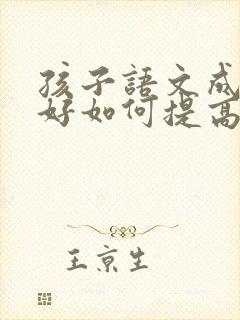 孩子語文成
好如何提高
王京生